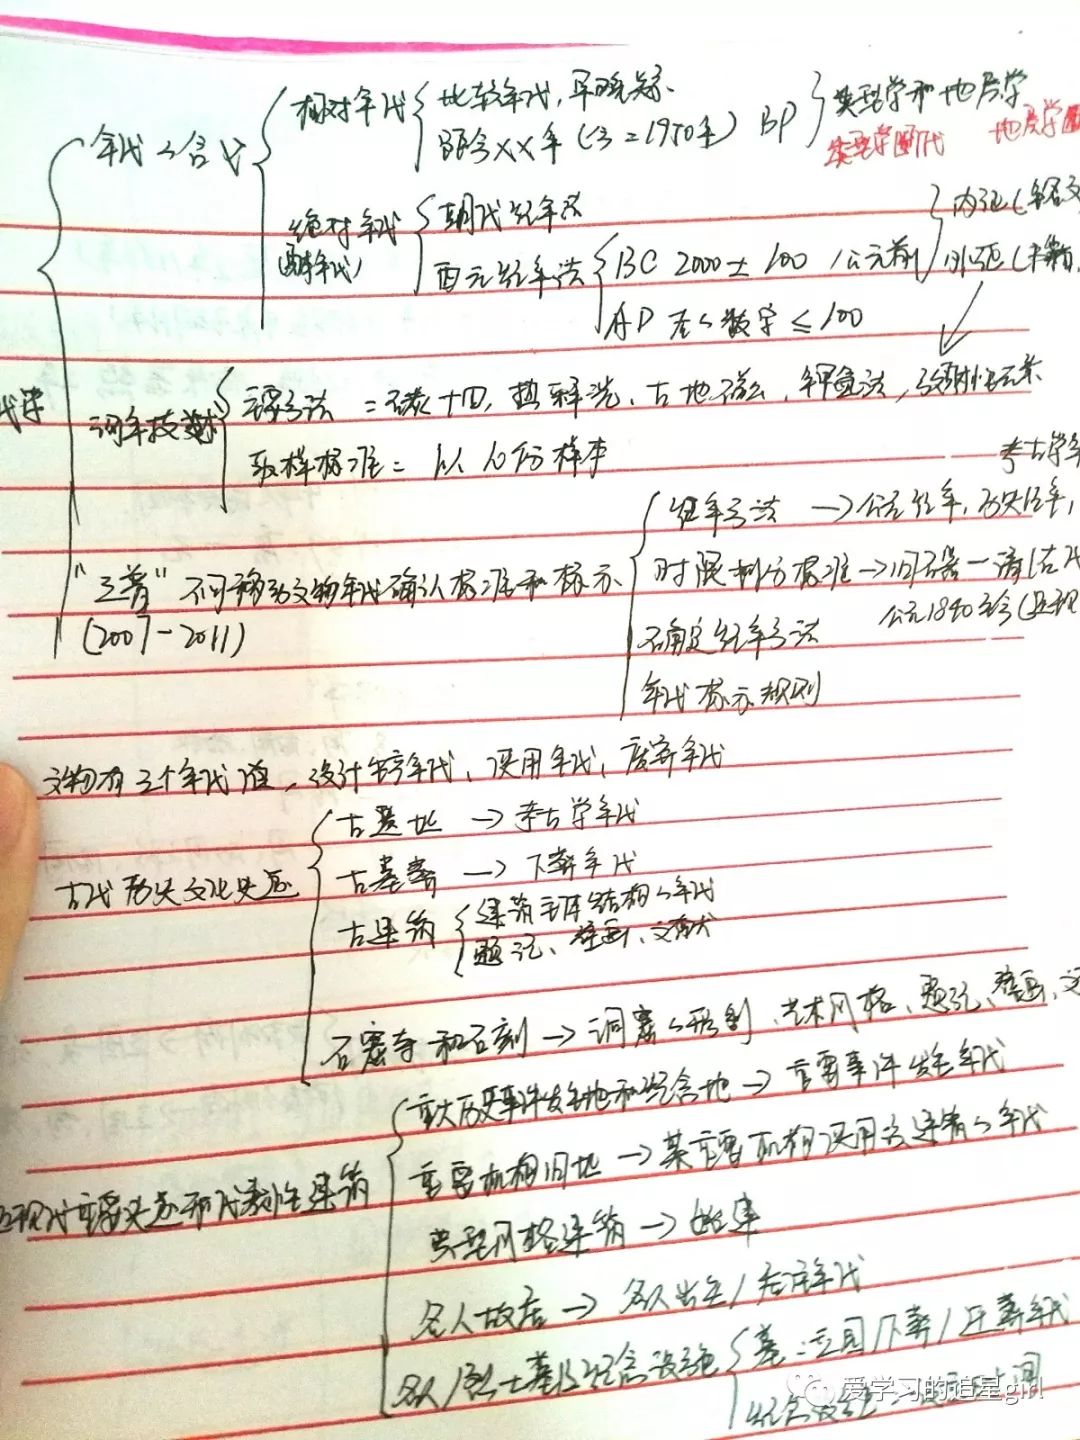 相对年代 比较年代,早晚关系、 类型学和地层学
年代之含义 距今XX年(今=1950年) BP 类型学断代 地层学
绝对年代 朝代纪年法 内证(
西元纪年法 BC 2000±100 公元前 外证(
AD 左右数字≤100
代学 测年技术 主要方法=碳十四,热释光、古地磁、钾氩法,放射性元素
取样标准=以 份样本 考古学年
纪年方法→公元纪年,历史纪年,
"三普"不可移动文物年代确认标准和标示 时限划分标准→旧石器—清(古代
(2007-2011) 公元1840至今(近现
不确定纪年方法
年代标示规则
文物有三个年代值,设计 年代、使用年代、废弃年代
古遗址→考古学年代
古代历史文化史迹 古墓葬→下葬年代
古建筑 建筑主体结构之年代
题记、壁画、文献
石窟寺和石刻→洞窟之形制、艺术风格、题记、壁画、文
重大历史事件发生地和纪念地→重要事件发生年代
重要机构旧址→某重要机构使用该建筑之年代
近现代重要史迹和代表性建筑 典型风格建筑→始建
名人故居→名人出生/居住年代
名人/烈士墓及纪念设施 墓:一月/下葬/迁葬年代
纪念设施 时间
爱学习的追星girl